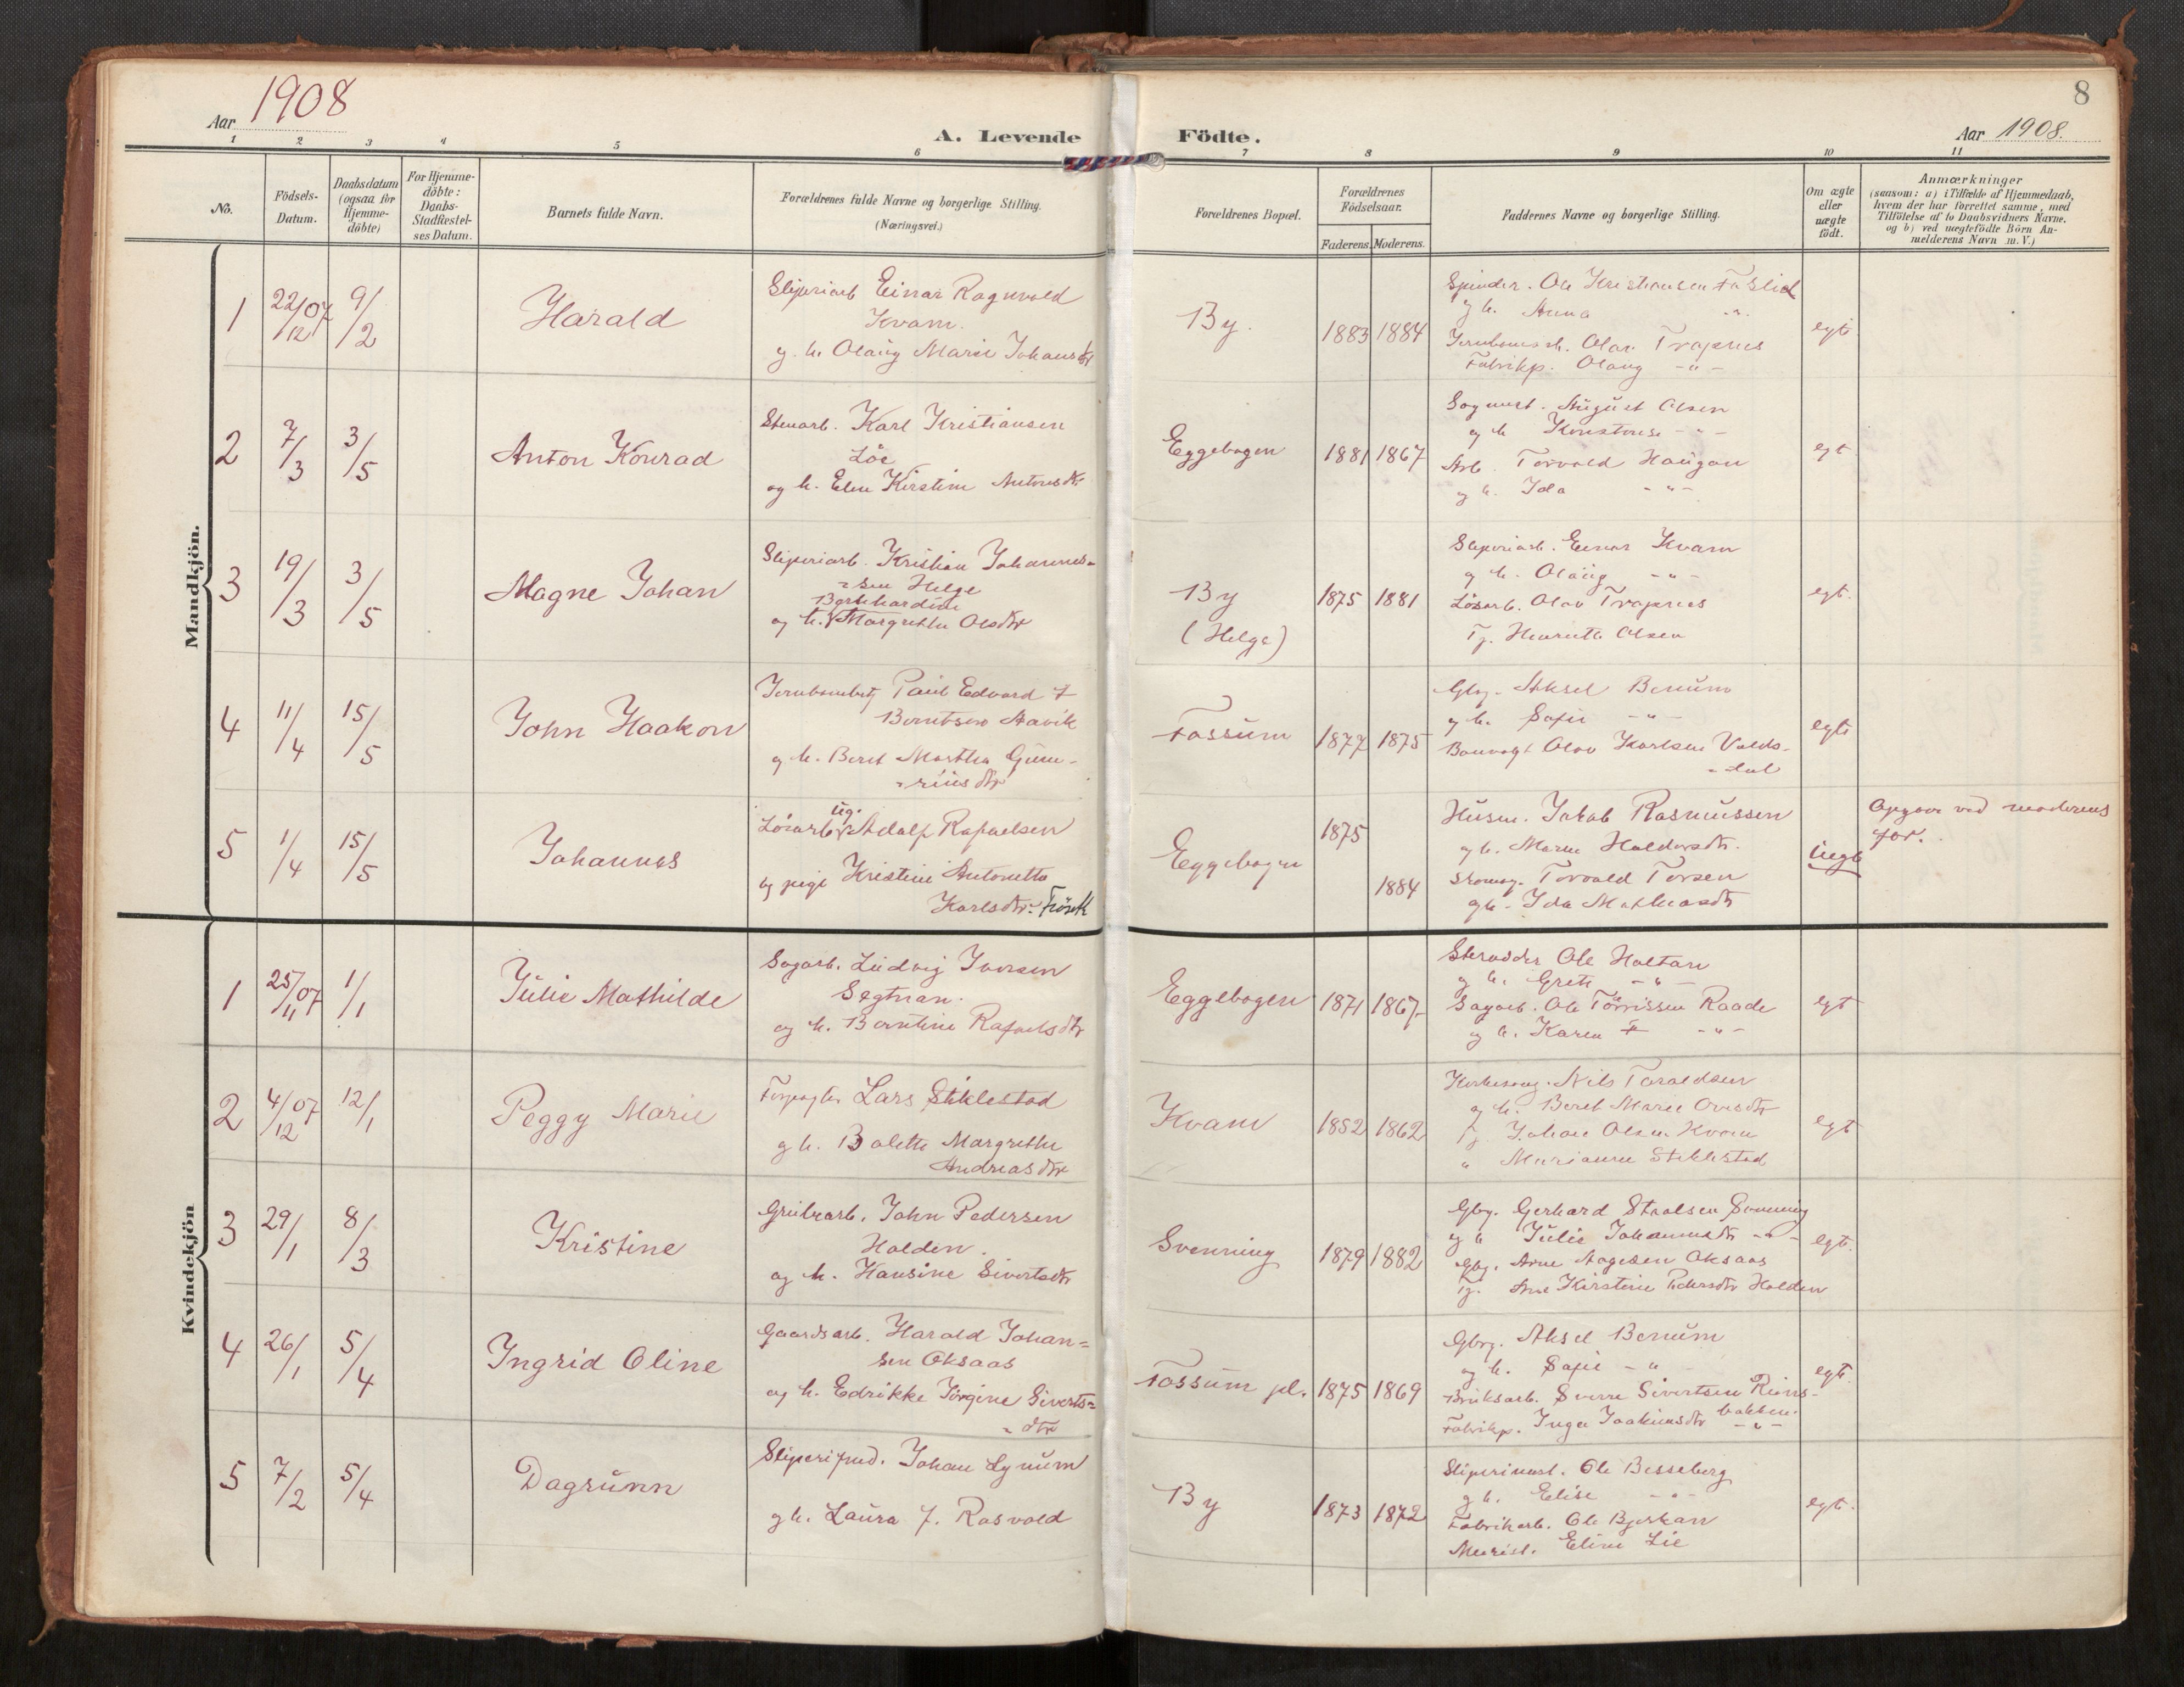 Aar 1908
A. Levende Födte.
Aar 1908.
8
1 2 3 4 5 6 7 8 9 10 11
No.
Födsels-
Datum.
Daabsdatum
(ogsaa for
Hjemme-
döbte)
For Hjemme-
döbte:
Daabs-
Stadfæstel-
ses Datum.
Barnets fulde Navn.
Forældrenes fulde Navne og borgerlige Stilling.
(Næringsvei.)
Forældrenes Bopæl.
Forældrenes
Födselsaar.
Faderens. Moderens.
Faddernes Navne og borgerlige Stilling.
Om ægte
eller
uægte
födt.
Anmærkninger
(saasom: a) i Tilfælde af Hjemmedaab,
hvem der har forrettet samme, med
Tilföielse af to Daabsvidners Navne.
og b) ved uægtefödte Börn An-
melderens Navn m. V.)
Mandkjön.
1 22/12 07 9/2 Harald
Sliperiarb Einar Ragnvald
Kvam.
g. h. Olaug Marie Johansdtr
By. 1883 1884
Ole Kristiansen
g h. Anna - " -
Olav Trapnes
Fabrikp. Olaug - " -
egt
2 7/3 3/5 Anton Konrad
Stenarb. Karl Kristiansen
Löe
og h. Elen Kirstine Antonsdtr
Eggebogen 1881 1867
Sagmest. August Olsen
og h Konstanse - " -
Arb. Torvald Haugan
og h. Ida - " -
egt
3 19/3 3/5 Magne Johan
Sliperiarb. Kristian Johannes-
sen Helge
Bernhardine
og h. Margrethe Olsdtr
By
(Helge)
1875 1881
Sliperiarb. Einar Kvam
og h. Olaug - " -
Lösarb. Olav Trapnes
Tj. Henriette Olsen
egt.
4 11/4 15/5 John Haakon
Paul Edvard
Berntsen Aavik
og h. Beret Martha Gune-
riusdtr
Fossum 1877 1875
Gbr. Aksel Benum
og h. Sofie - " -
Banvogt Olav Karlsen Volds-
dal
egt
5 1/4 15/5 Johannes
Lösarb ug. Adolf Rafaelsen
og pige Kristine Antonette
Karlsdtr. Frösek
Eggebogen 1875
1884
Husm. Jakob Rasmussen
g h. Maren Haldorsdtr.
Skomag. Torvald Torsen
gh. Ida Mathiasdtr
uegt
Opgave ved moderens
far.
Kvindekjön
1 25/11 07 1/1 Julie Mathilde
Sagarb. Ludvig Iversen
Segtnan.
og h. Berntine Rafaelsdtr
Eggebogen 1871 1867
Ole Holtan
og h. Grete - " -
Sagarb. Ole Törrissen Raade
og h. Karen - " -
egt
2 4/12 07 12/1 Peggy Marie
Forpagter Lars Stiklestad
g h. Bolette Margrethe
Andreasdtr
Kvam 1852 1862
Kirkesang. Nils Toraldsen
og h. Beret Marie Ovesdtr
Tj. Johan Olsen Kvam
" Marianne Stiklestad
egt
3 29/1 8/3 Kristine
Grubearb. John Pedersen
Holden.
og h. Hansine Sivertsdtr
Svenning 1879 1882
Gbr. Gerhard Staalsen Svenning
og h Julie Johannesdtr - " -
Gbr. Arne Aagesen Oksaas
Tj. Ane Kirstine Pedersdtr Holden
egt.
4 26/1 5/4 Ingrid Oline
Gaardsarb. Harald Johan-
sen Oksaas
og h. Edrikke Jörgine Siverts-
dtr
Fossum pl. 1875 1869
Gbr. Aksel Benum
og h. Sofie - " -
Bruksarb. Sverre Sivertsen Reins-
bakken.
Fabrikp. Inga Joakimsdtr - " -
egt.
5 7/2 5/4 Dagrunn
Sliperifmd. Johan Lynum
g h. Laura J. Rosvold
By 1873 1872
Sliperimest. Ole Besseberg
g h. Elise - " -
Fabrikarb. Ole Bjerkan
Elin Lie
egt.